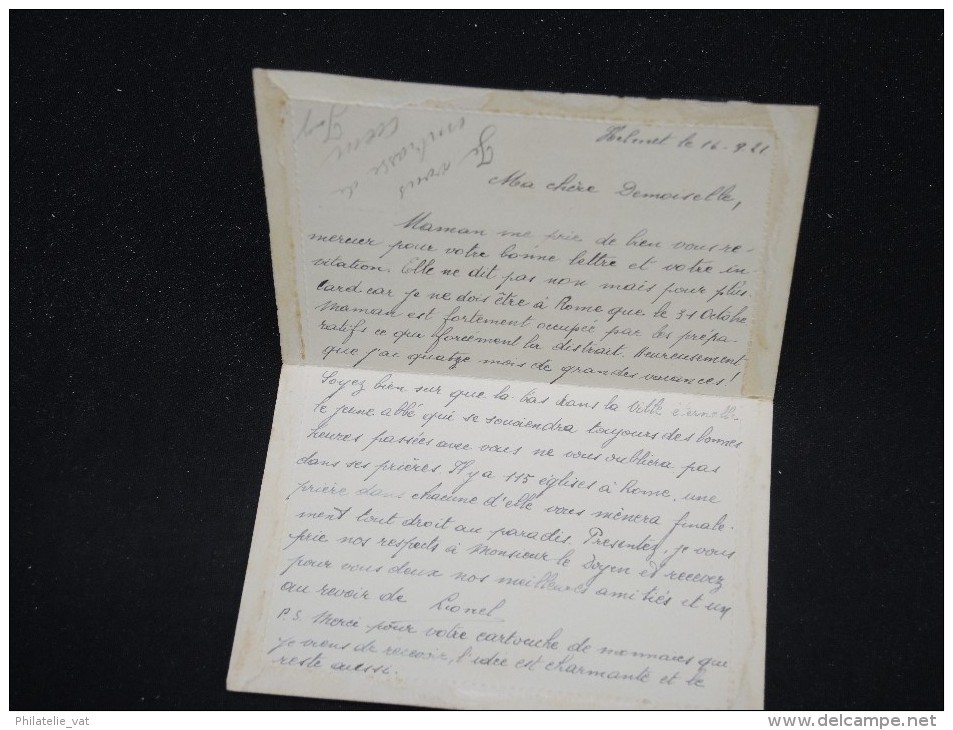 Helmet le 16-9.21.
Ma chère Demoiselle,
Maman me prie de bien vous re-
mercier pour votre bonne lettre et votre in-
vitation. Elle ne dit pas non mais pour plus
tard car je ne dois être à Rome que le 31 Octobre.
Maman est fortement occupée par les prépa-
ratifs ce qui forcément la distrait. Heureusement
que j'ai quatze mois de grandes vacances!
Soyez bien sur que la-bas dans la ville éternelle
le jeune abbé qui se souviendra toujours des bonnes
heures passées avec vous ne vous oubliera pas
dans ses prières. Il y a 115 églises à Rome, une
prière dans chacune d'elle vous mènera finale-
ment tout droit au paradis. Presentez, je vous
prie nos respects à Monsieur le Doyen et recevez
pour vous deux nos meilleures amitiés et un
au revoir de Lionel
P.S. Merci pour votre cartouche de monnaies que
je viens de recevoir, l'idée est charmante et le
reste aussi.
Je vous
embrasse de
coeur
Philatelie_vat
www.delcampe.net